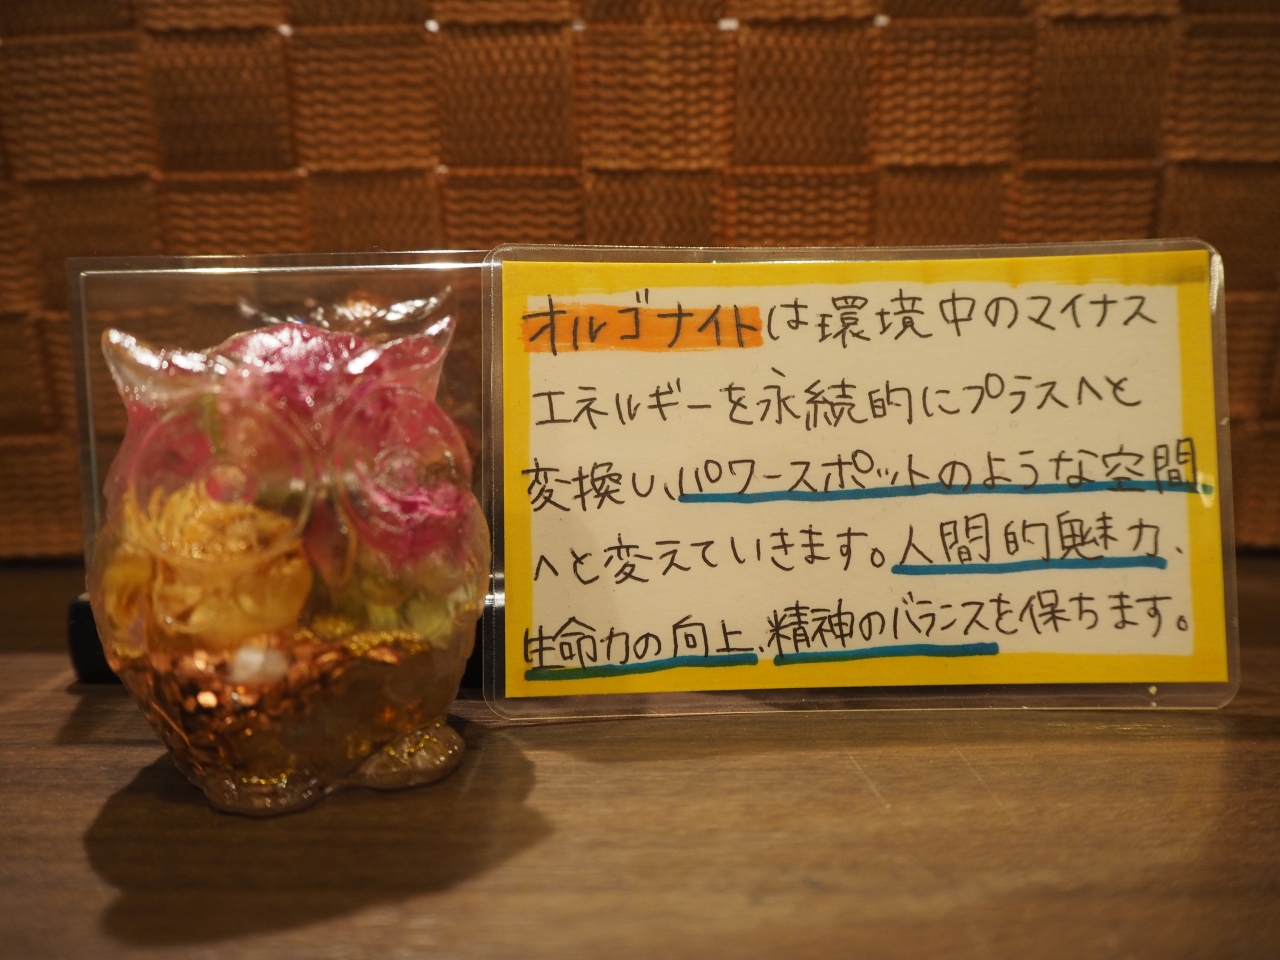 オルゴナイトは環境中のマイナス
エネルギーを永続的にプラスへと
変換し、パワースポットのような空間
へと変えていきます。人間的魅力、
生命力の向上、精神のバランスを保ちます。